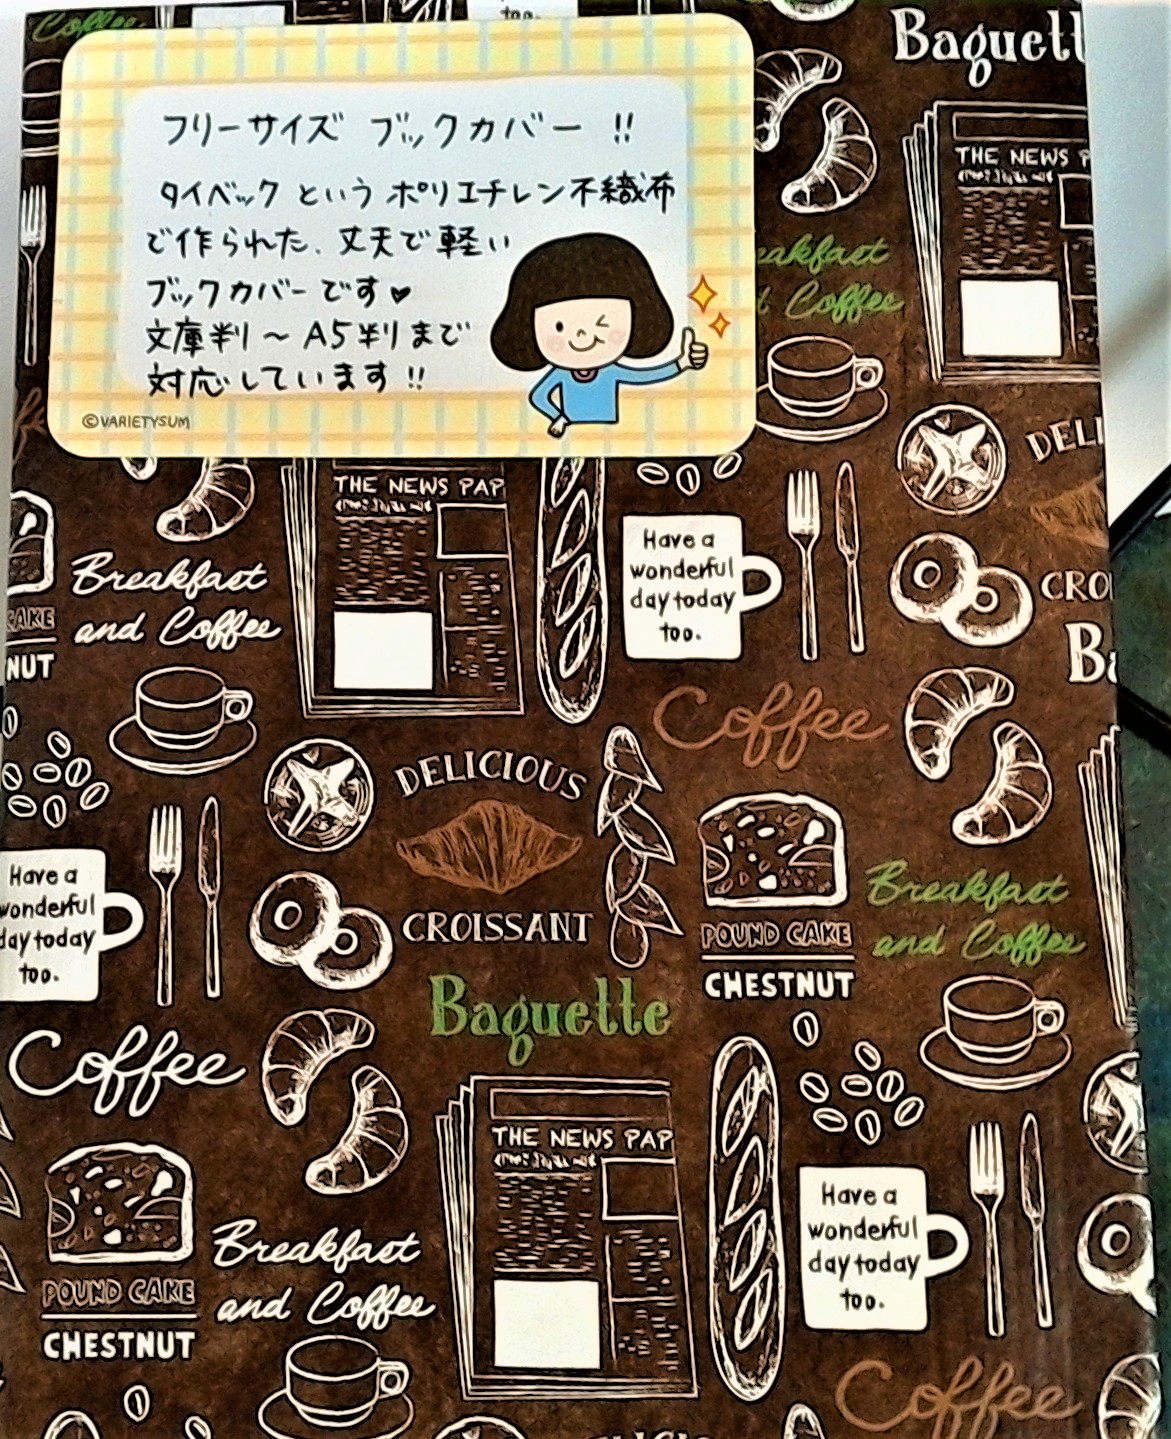 Coffee
too.
Baguett
フリーサイズ ブックカバー !!
タイベック という ポリエチレン不織布
で作られた、丈夫で軽い
ブックカバーです♥
文庫判〜A5判りまで
対応しています!!
©VARIETYSUM
THE NEWS P
eakfast
d Coffee
DELI
CRO
Ba
THE NEWS PAP
Have a
wonderful
day today
too.
Breakfast
and Coffee
CAKE
NUT
Coffee
DELICIOUS
CROISSANT
Baguette
POUND CAKE
CHESTNUT
Breakfast
and Coffee
Have a
wonderful
day today
too.
Coffee
THE NEWS PAP
Have a
wonderful
day today
too.
POUND CAKE
CHESTNUT
Breakfast
and Coffee
Coffee